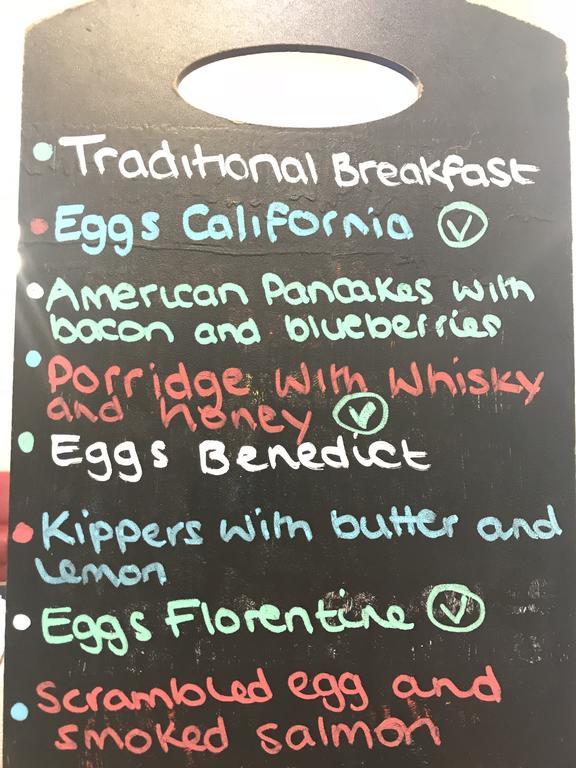 • Traditional Breakfast
• Eggs California ✓
• American Pancakes with
bacon and blueberries
• Porridge with Whisky
and honey ✓
• Eggs Benedict
• Kippers with butter and
Lemon
• Eggs Florentine ✓
• Scrambled egg and
smoked salmon